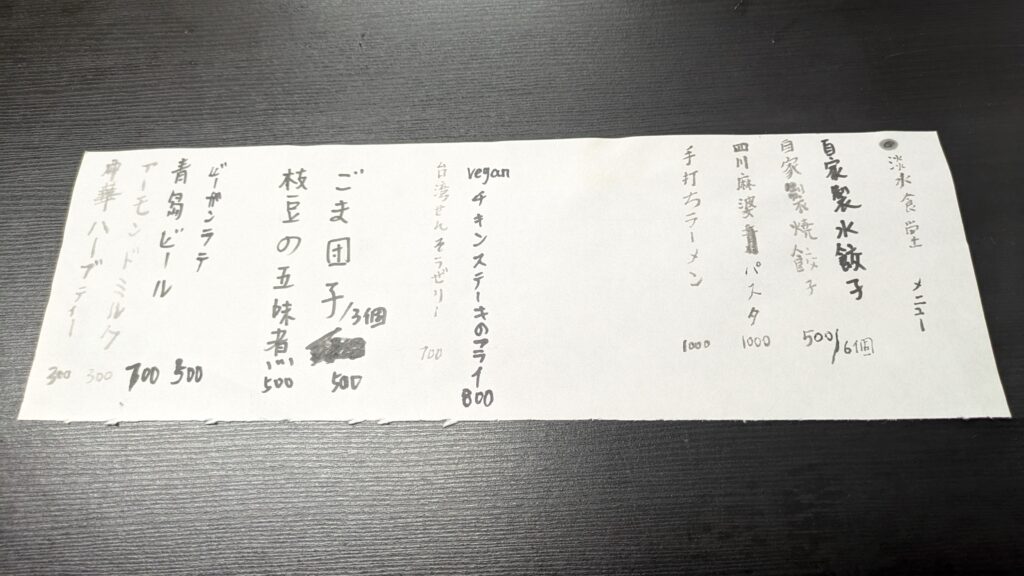 淡水食堂 メニュー
自家製水餃子
自家製焼餃子 500/6個
四川麻婆パスタ 1000
手打ちラーメン 1000
vegan チキンステーキのフライ 800
台湾せんそうゼリー 700
ごま団子/3個 500
枝豆の五味煮 500
ビーガンラテ 500
青島ビール 700
アーモンドミルク 300
中華ハーブティー 300